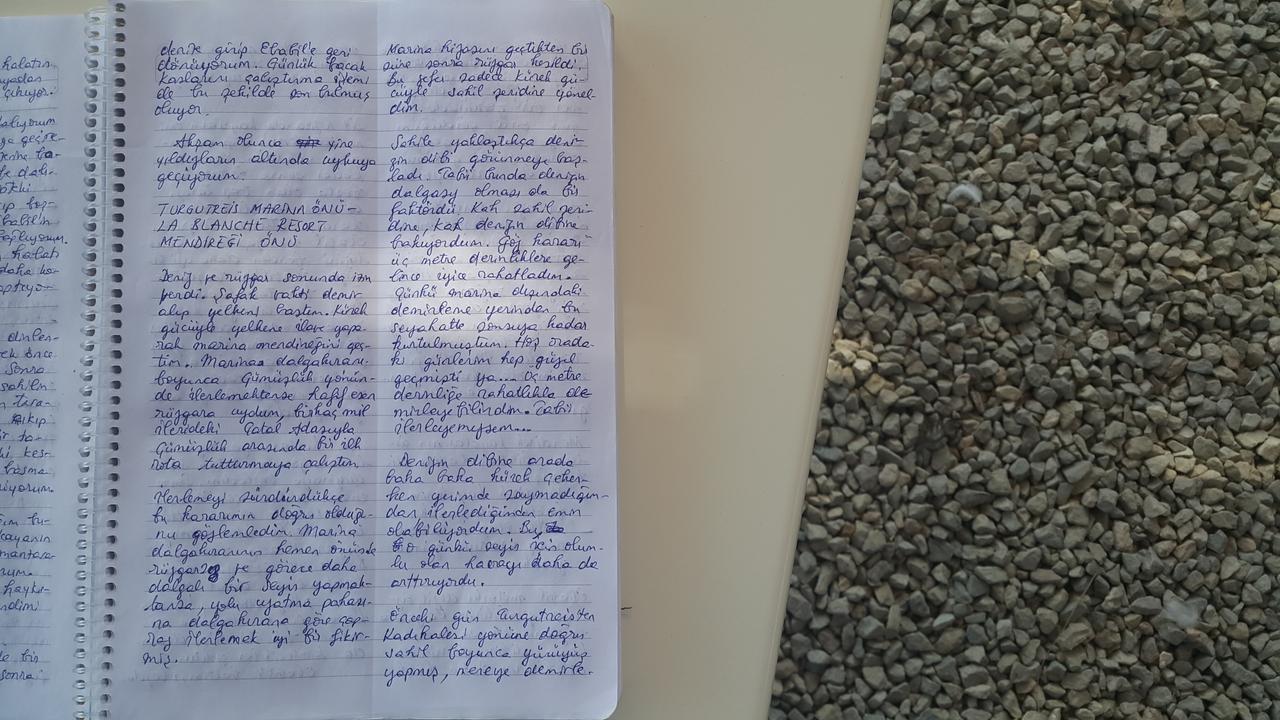 halatın
yadan
çıkıyor.
denize girip Ebabil'e geri
dönüyorum. Günlük bacak
kaslarını çalıştırma işlemi
de bu şekilde son bulmuş
oluyor.
Akşam olunca yine
yıldızların altında uykuya
geçiyorum.
TURGUTREİS MARİNA ÖNÜ -
LA BLANCHE RESORT
MENDİREĞİ ÖNÜ
Deniz ve rüzgar sonunda izin
verdi. Şafak vakti demir
alıp yelkeni bastım. Kürek
gücüyle yelkene ilave yapa-
rak marina mendireğini geç-
tim. Marina dalgakıranı
boyunca Gümüşlük yönün-
de ilerlemektense hafif esen
rüzgara uydum, birkaç mil
ilerideki Çatal Adasıyla
Gümüşlük arasında bir ilk
rota tutturmaya çalıştım.
İlerlemeyi sürdürdükçe
bu kararımın doğru olduğu-
nu gözlemledim. Marina
dalgakıranının hemen önünde
rüzgarsız ve görece daha
dalgalı bir seyir yapmak-
tansa, yolu uzatma pahası-
na dalgakırana göre çap-
raz ilerlemek iyi bir fikir-
miş.
Marina hizasını geçtikten bir
süre sonra rüzgar kesildi.
Bu sefer sadece kürek gü-
cüyle sahil şeridine yönel-
dim.
Sahile yaklaştıkça deni-
zin dibi görünmeye baş-
ladı. Tabii bunda denizin
dalgasız olması da bir
faktördü. Kah sahil şeri-
dine, kah denizin dibine
bakıyordum. Göz kararı
üç metre derinliklere ge-
lince iyice rahatladım.
Çünkü marina dışındaki
demirleme yerinden bu
seyahatte sonsuza kadar
kurtulmuştum. Hoş orada-
ki günlerim hep güzel
geçmişti ya... Üç metre
derinliğe rahatlıkla de-
mirleyebilirdim. Tabii
ilerleyemezsem...
Denizin dibine arada
baka baka kürek çeker-
ken yerimde saymadığım-
dan ilerlediğimden emin
olabiliyordum. Bu
o günkü seyir için olum-
lu olan havayı daha da
arttırıyordu.
Önceki gün Turgutreisten
Kadıkalesi yönüne doğru
sahil boyunca yürüyüş
yapmış, nereye demirle-